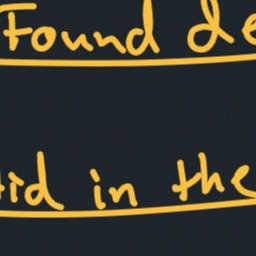 Found de
id in the